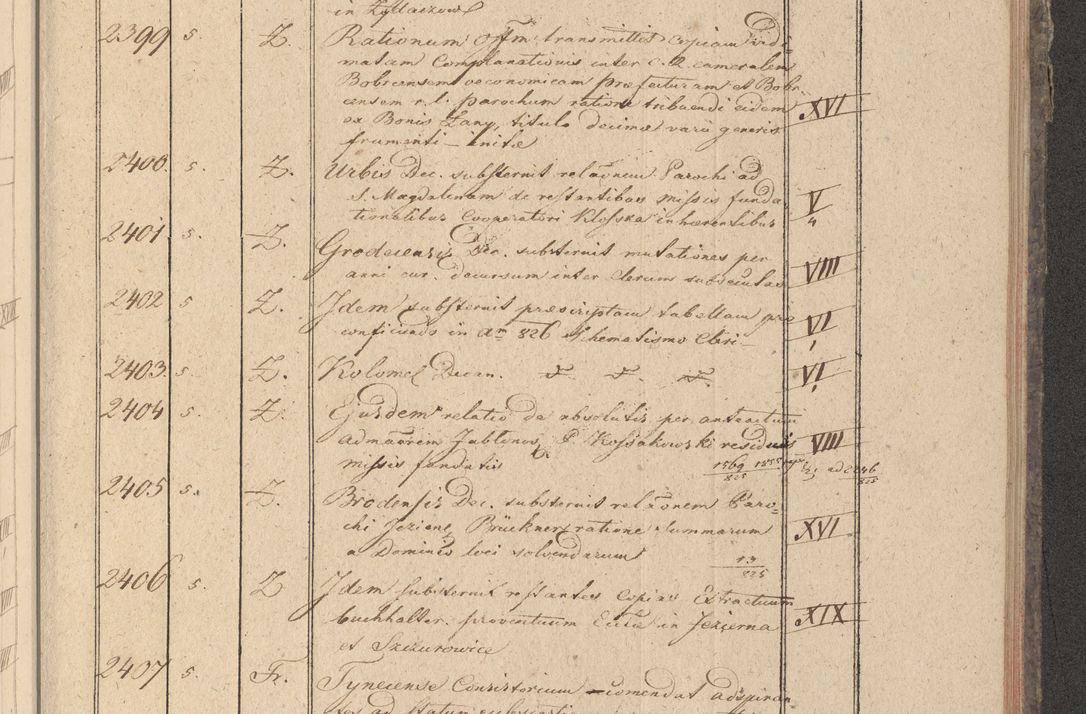 in Zyttaczow
2399 5. Z. Rationum Offm transmittet copiam vidi=
matam Complanationis inter c. R. cameralem
Bobrcensem oeconomicam præfecturam et Bobr-
censem r. l. parochum ratione tribuendi eidem XVI
ex Bonis Lany, titulo decimæ varii generis
frumenti – initæ
2400. 5. Z. Urbis Dec. substernit relaõnem Parochi ad
S. Magdalenam de restantibus missis funda-
tionalibus Cooperatori Klosska inhærentibus V 4
2401. 5. Z. Grodecensis Dec. substernit mutationes per
anni cur. decursum inter Clerum subsecutas VIII
2402 5 Z. Idem substernit præscriptam tabellam pro
conficiendo in Am 826 Schematismo Cleri – VI 1
2403. 5. Z. Kolomej Decan. VI 1
2404 5. Z. Ejusdem relatio de absolutis per anteactum
admaõrem Jablonow, P. Kossakowski residuis VIII
missis fundatis 1569 1555 825 ad 2246 825
2405 5. Z. Brodensis Dec. substernit relaõnem Paro-
chi Jezierne Brückner ratione summarum XVI
a Dominio loci solvendarum 13 825
2406 5. Z Idem substernit restantes copias Extractuum
buchhalter. proventuum Eccliæ in Jezierna XIX
et Szczurowice
2407 5. Fr. Tynecense Consistorium comendat adspiran-
tes ad statum ecclesiasti